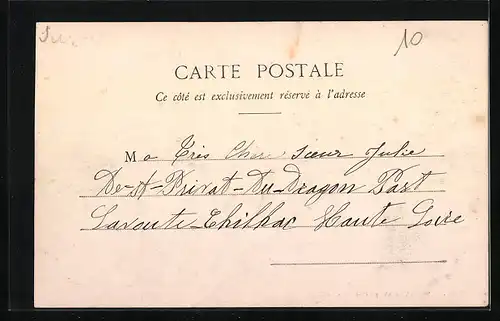 10
CARTE POSTALE
Ce côté est exclusivement réservé à l'adresse
Ma Très Chere Sœur Julie
De-St-Privat-Du-Dragon Part
Lavoute-Chilhac Haute Loire